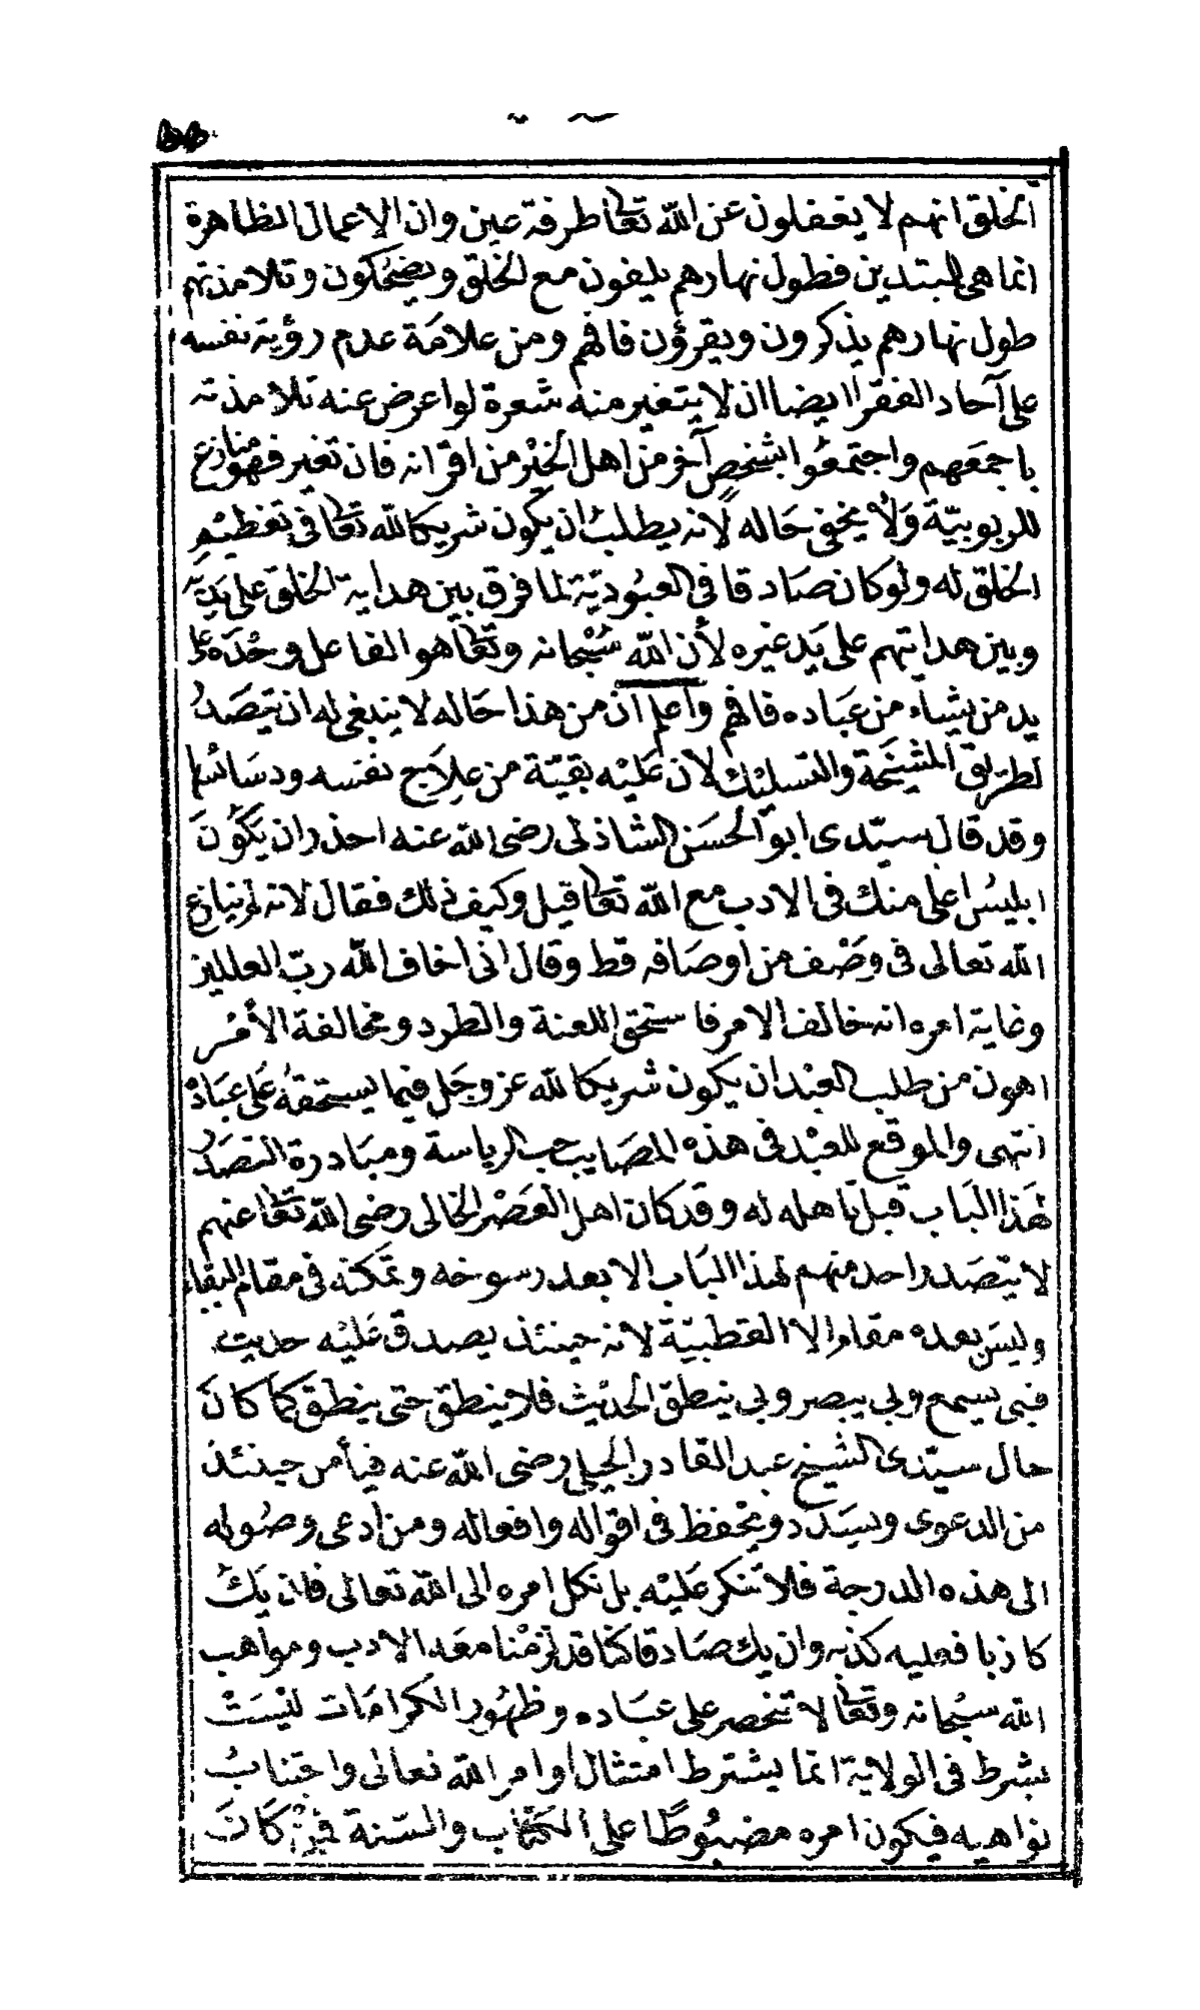 الخلق انهم لا يغفلون عن الله تعالى طرفة عين وان الاعمال الظاهرة
انما هى للمبتدين فطول نهارهم يلغون مع الخلق ويضحكون وتلامذتهم
طول نهارهم يذكرون ويقرؤن فافهم ومن علامة عدم رؤية نفسه
على آحاد الفقرا ايضا ان لا يتغير منه شعرة لو اعرض عنه تلامذته
باجمعهم واجتمعوا بشخص آخر من اهل الخير من اقرانه فان تغير فهو منازع
للربوبية ولا يخفى حاله لانه يطلب ان يكون شريكا لله تعالى فى تعظيم
الخلق له ولو كان صادقا فى العبودية لما فرق بين هداية الخلق على يديه
وبين هدايتهم على يد غيره لأن الله سبحانه وتعالى هو الفاعل وحده على
يد من يشاء من عباده فافهم واعلم ان من هذا حاله لا ينبغى له ان يتصدر
لطريق المشيخة والتسليك لان عليه بقية من علاج نفسه ودسائسها
وقد قال سيدى ابو الحسن الشاذلى رضى الله عنه احذر ان يكون
ابليس اعلى منك فى الادب مع الله تعالى قيل وكيف ذلك فقال لانه لم ينازع
الله تعالى فى وصف من اوصافه قط وقال انى اخاف الله رب العالمين
وغاية امره انه خالف الامر فاستحق اللعنة والطرد ومخالفة الأمر
اهون من طلب العبد ان يكون شريكا لله عز وجل فيما يستحقه على عباده
انتهى والموقع للعبد فى هذه المصايب حب الرياسة ومبادرة التصدر
لهذا الباب قبل تاهله له وقد كان اهل العصر الخالى رضى الله تعالى عنهم
لا يتصدر احد منهم لهذا الباب الا بعد رسوخه وتمكنه فى مقام البقاء
وليس بعده مقام الا القطبية لانه حينئذ يصدق عليه حديث
فبى يسمع وبى يبصر وبى ينطق الحديث فلا ينطق حتى ينطق كما كان
حال سيدى الشيخ عبد القادر الجيلى رضى الله عنه فيأمن حينئذ
من الدعوى ويسدد ويحفظ فى اقواله وافعاله ومن ادعى وصوله
الى هذه الدرجة فلا تنكر عليه بل نكل امره الى الله تعالى فان يك
كاذبا فعليه كذبه وان يك صادقا كنا قد لزمنا معه الادب ومواهب
الله سبحانه وتعالى لا تنحصر على عباده وظهور الكرامات ليست
بشرط فى الولاية انما يشترط امتثال اوامر الله تعالى واجتناب
نواهيه فيكون امره مضبوطا على الكتاب والسنة فمن كان